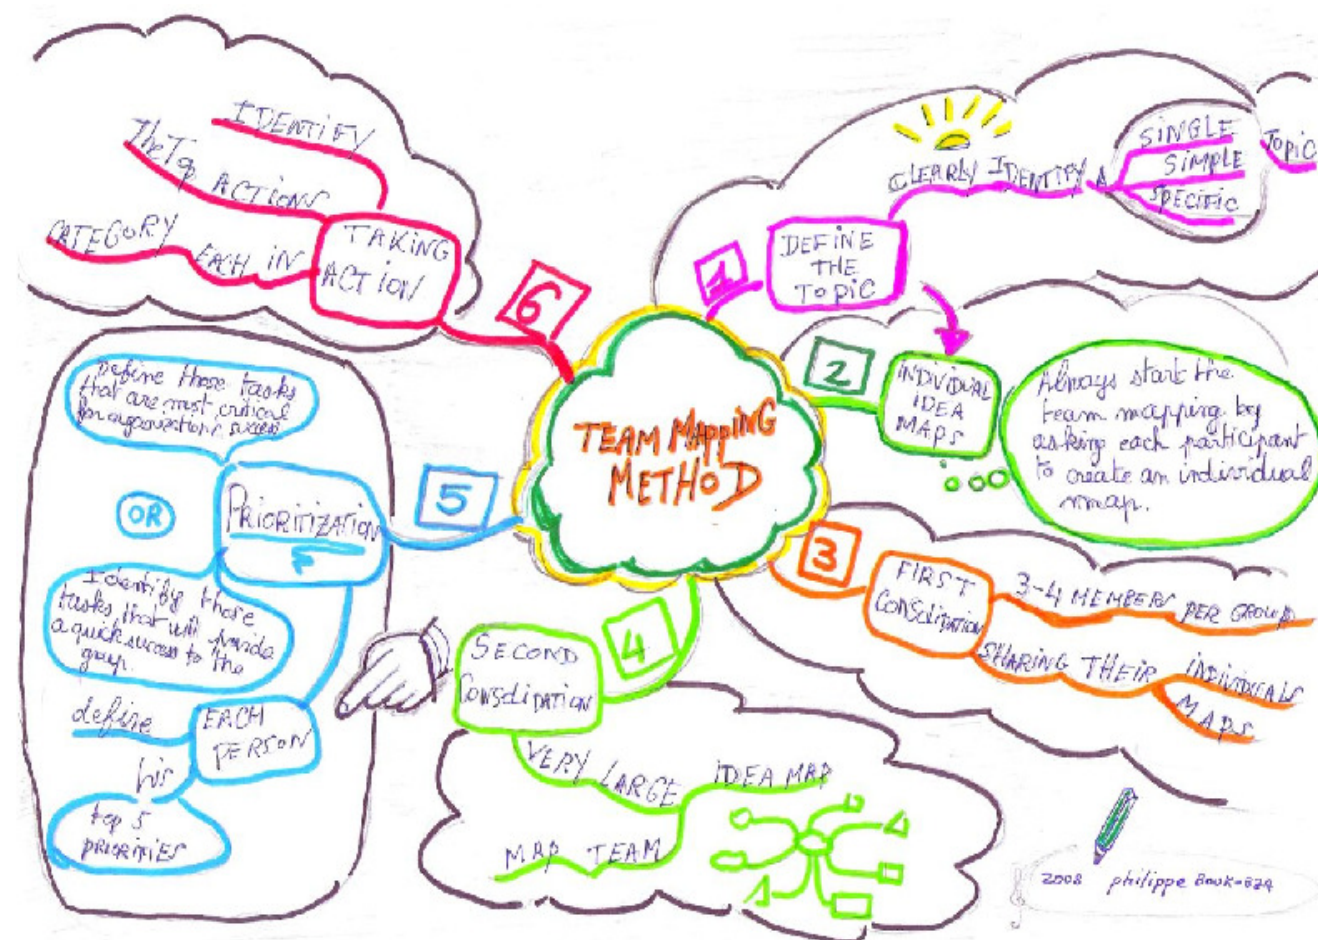 TEAM MAPPING
METHOD
1
DEFINE
THE
TOPIC
CLEARLY IDENTIFY A
SINGLE
SIMPLE
SPECIFIC
TOPIC
2
INDIVIDUAL
IDEA
MAPS
Always start the
team mapping by
asking each participant
to create an individual
map.
3
FIRST
CONSOLIDATION
3-4 MEMBERS PER GROUP
SHARING THEIR INDIVIDUALS
MAPS
4
SECOND
CONSOLIDATION
VERY LARGE IDEA MAP
MAP TEAM
5
PRIORITIZATION
Define those tasks
that are most critical
for organization's success
OR
Identify those
tasks that will provide
a quick success to the
group.
EACH
PERSON
define
his
top 5
PRIORITIES
6
TAKING
ACTION
IDENTIFY
The Top ACTIONS
CATEGORY EACH IN
2008 philippe